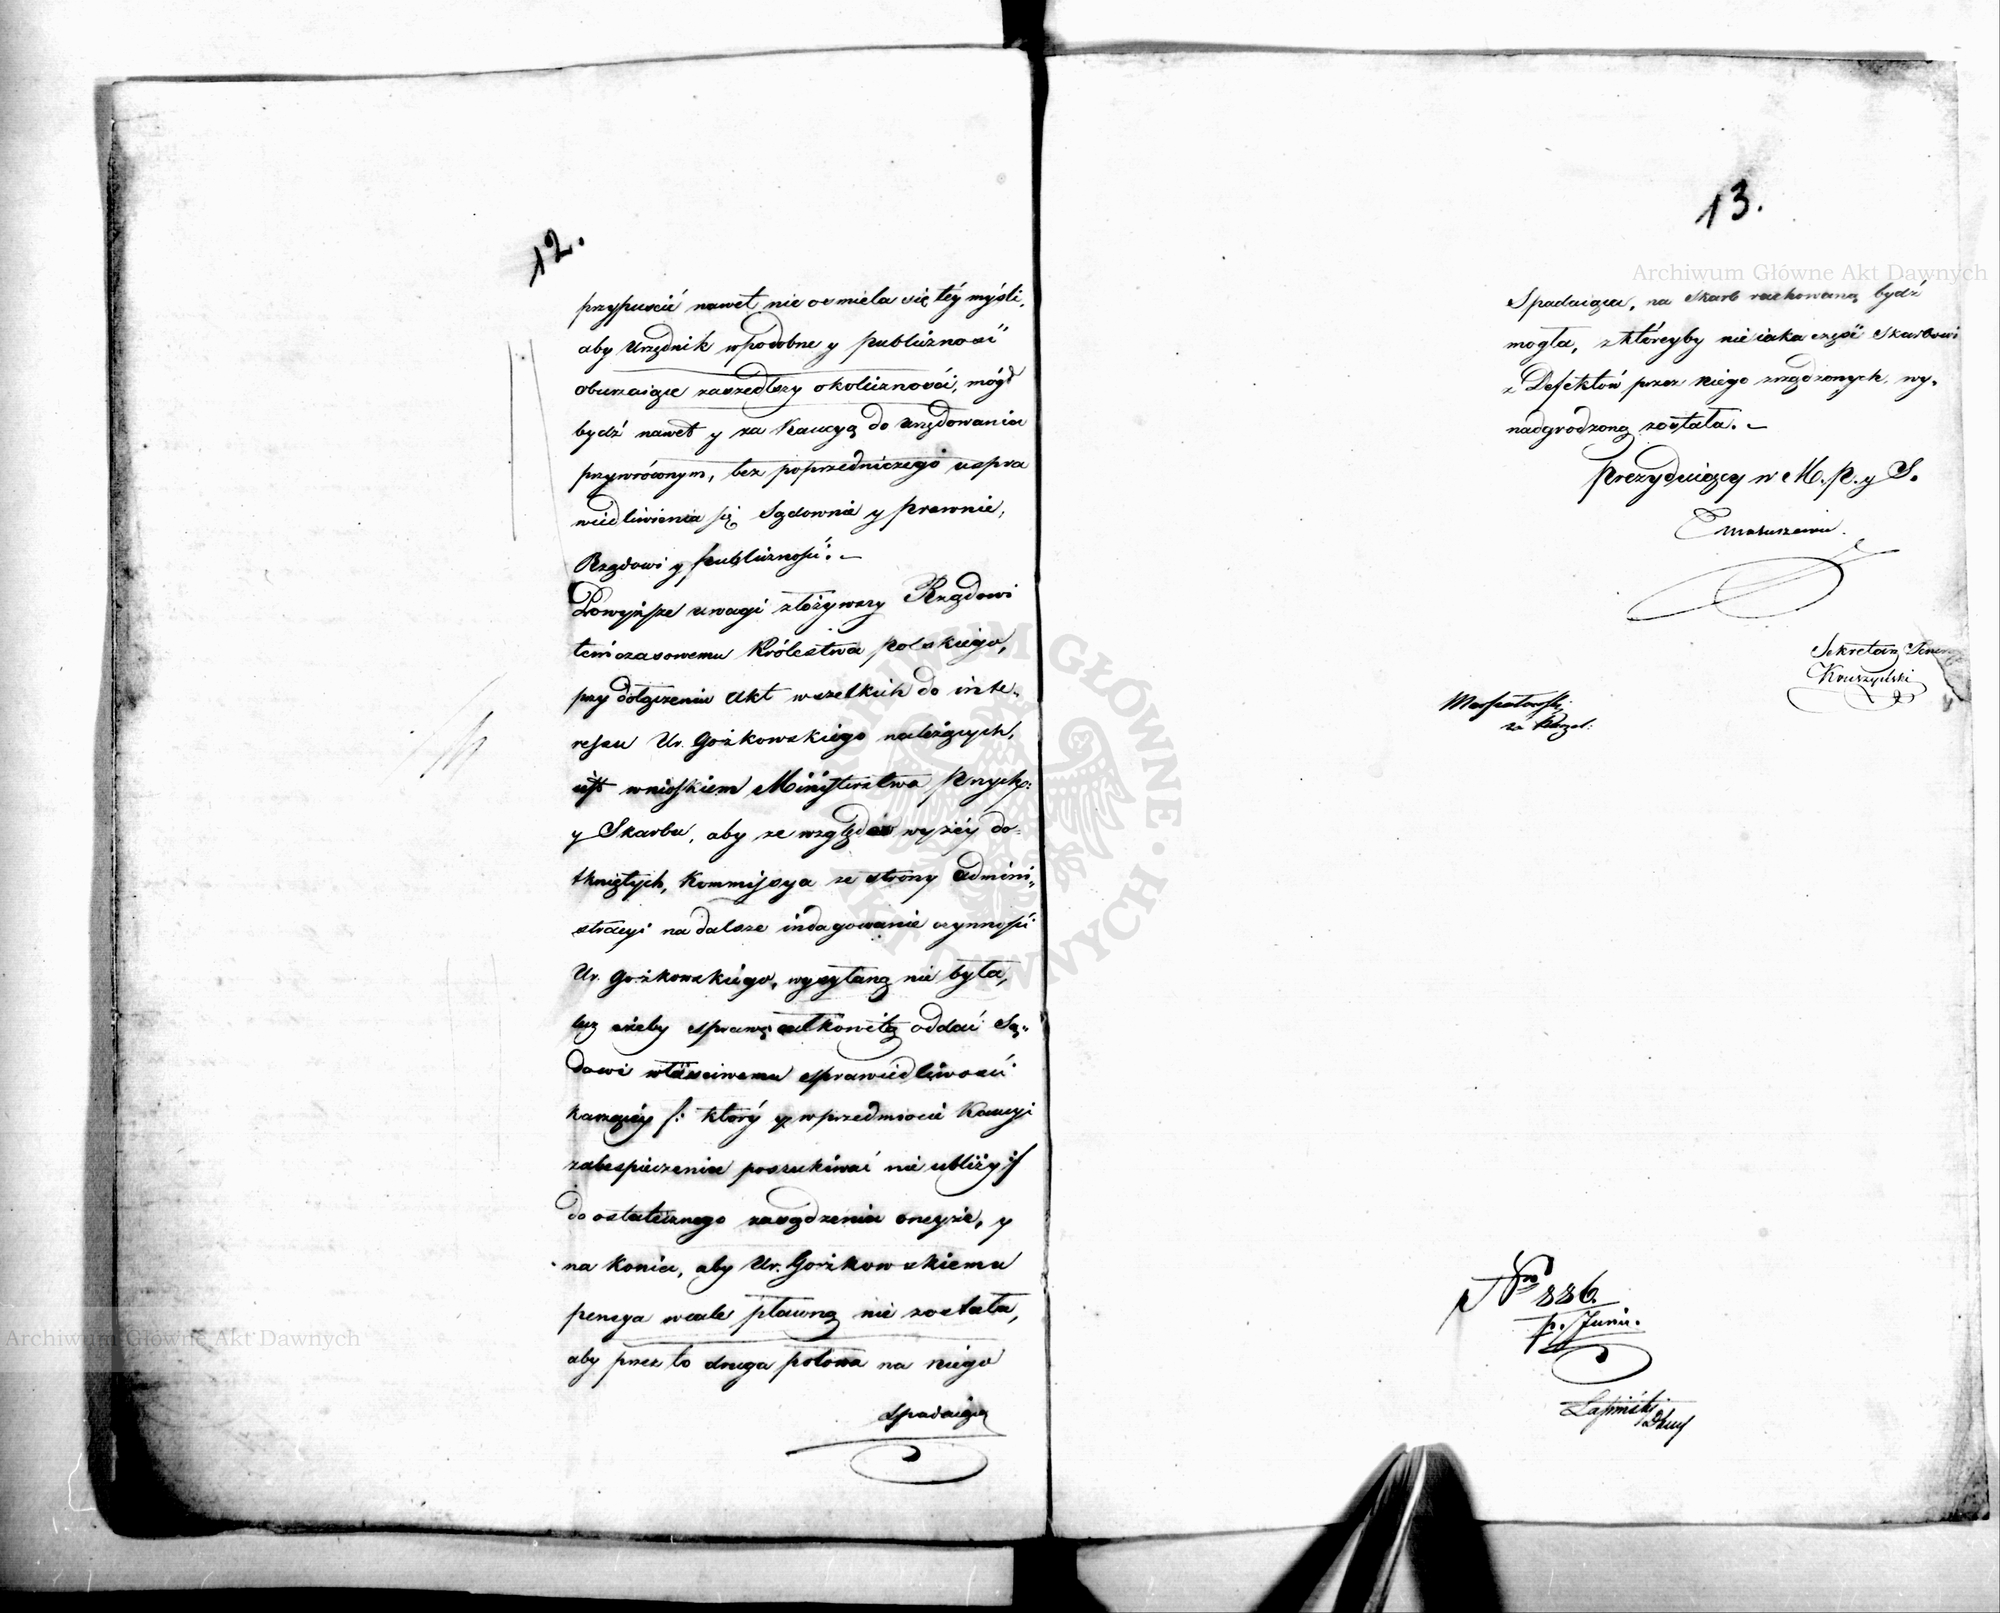 12.
przypuścić nawet nie ośmiela się téy myśli,
aby Urzędnik w podobne y publiczność
oburzaiące zaszedłszy okoliczności, mógł
bydź nawet y za Kaucyą do urzędowania
przywróconym, bez poprzedniczego uspra
wiedliwienia się Sądownie y prawnie,
Rządowi y publicznosci. –
Powyższe uwagi złożywszy Rządowi
temczasowemu Królestwa polskiego,
przy dołączeniu Akt wszelkich do inte„
ressu Ur. Gożkowskiego należących,
iest wnioskiem Ministerstwa Przych:
y Skarbu, aby ze względów wyżéy do„
tkniętych, Kommissya ze strony Admini„
stracyi na dalsze indagowanie czynności
Ur. Gożkowskiego, wysyłaną nie była,
lecz ażeby sprawę całkowitą oddać Są„
dowi właściwemu sprawiedliwości
karzącéy /: który y w przedmiocie Kaucyi
zabespieczenia poszukiwać nie ubliży :/
do ostatecznego zasądzenia oneyże, y
na koniec, aby Ur. Gorzkowskiemu
pensya wcale płacwną nie została,
aby przez to druga połowa na niego
spadaiąca
13.
Spadaiąca, na skarb rachowaną bydź
mogła, z któreyby nieiaka część Skarbowi
z Defektów przez niego zrządzonych, wy„
nadgrodzoną została. –
Prezyduiący w M. P. y S.
Matuszewic.
Sekretarz Gener
Kruszyński
za
No 886.
p. Junii.
Łapiński
Archiwum Główne Akt Dawnych
Archiwum Główne Akt Dawnych
ARCHIWUM GŁÓWNE AKT DAWNYCH